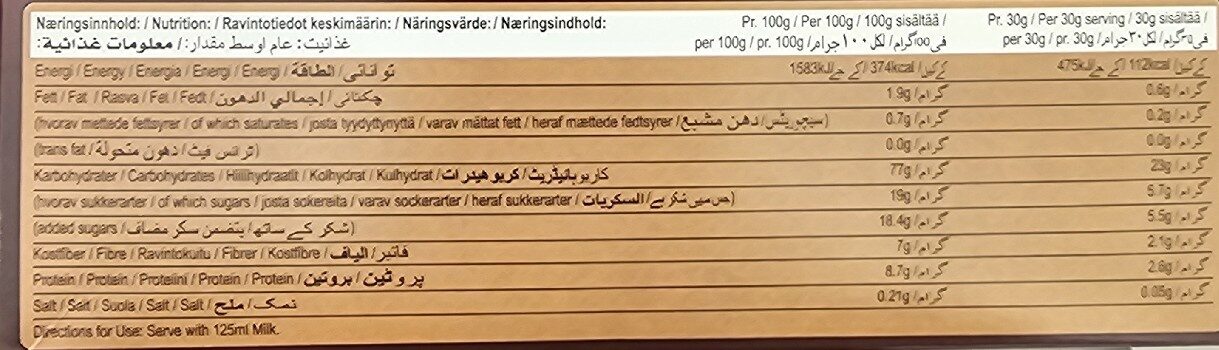 Næringsinnhold: / Nutrition: / Ravintotiedot keskimäärin: / Näringsvärde: / Næringsindhold: Pr. 100g / Per 100g / 100g sisältää / Pr. 30g / Per 30g serving / 30g sisältää /
غذائیت: عام اوسط مقدار: / معلومات غذائية: per 100g / pr. 100g / فی ۱۰۰گرام / لكل ١٠٠ جرام per 30g / pr. 30g / فی ۳۰گرام / لكل ٣٠ جرام
Energi / Energy / Energia / Energi / Energi / توانائی / الطاقة 1583kJ کے جے / 374kcal کے کیل 475kJ کے جے / 112kcal کے کیل
Fett / Fat / Rasva / Fet / Fedt / چکنائی / إجمالي الدهون 1.9g / گرام 0.6g / گرام
(hvorav mettede fettsyrer / of which saturates / josta tyydyttynyttä / varav mättat fett / heraf mættede fedtsyrer / سیچوریٹس / دهن مشبع) 0.7g / گرام 0.2g / گرام
(trans fat / ٹرانس فیٹ / دهون متحولة) 0.0g / گرام 0.0g / گرام
Karbohydrater / Carbohydrates / Hiilihydraatit / Kolhydrat / Kulhydrat / کاربوہائیڈریٹ / كربوهيدرات 77g / گرام 23g / گرام
(hvorav sukkerarter / of which sugars / josta sokereita / varav sockerarter / heraf sukkerarter / جس میں شکر ہے / السكريات) 19g / گرام 5.7g / گرام
(added sugars / شکر کے ساتھ / يتضمن سكر مضاف) 18.4g / گرام 5.5g / گرام
Kostfiber / Fibre / Ravintokuitu / Fibrer / Kostfibre / فائبر / الياف 7g / گرام 2.1g / گرام
Protein / Protein / Proteiini / Protein / Protein / پروٹین / بروتين 8.7g / گرام 2.6g / گرام
Salt / Salt / Suola / Salt / Salt / نمک / ملح 0.21g / گرام 0.06g / گرام
Directions for Use: Serve with 125ml Milk.